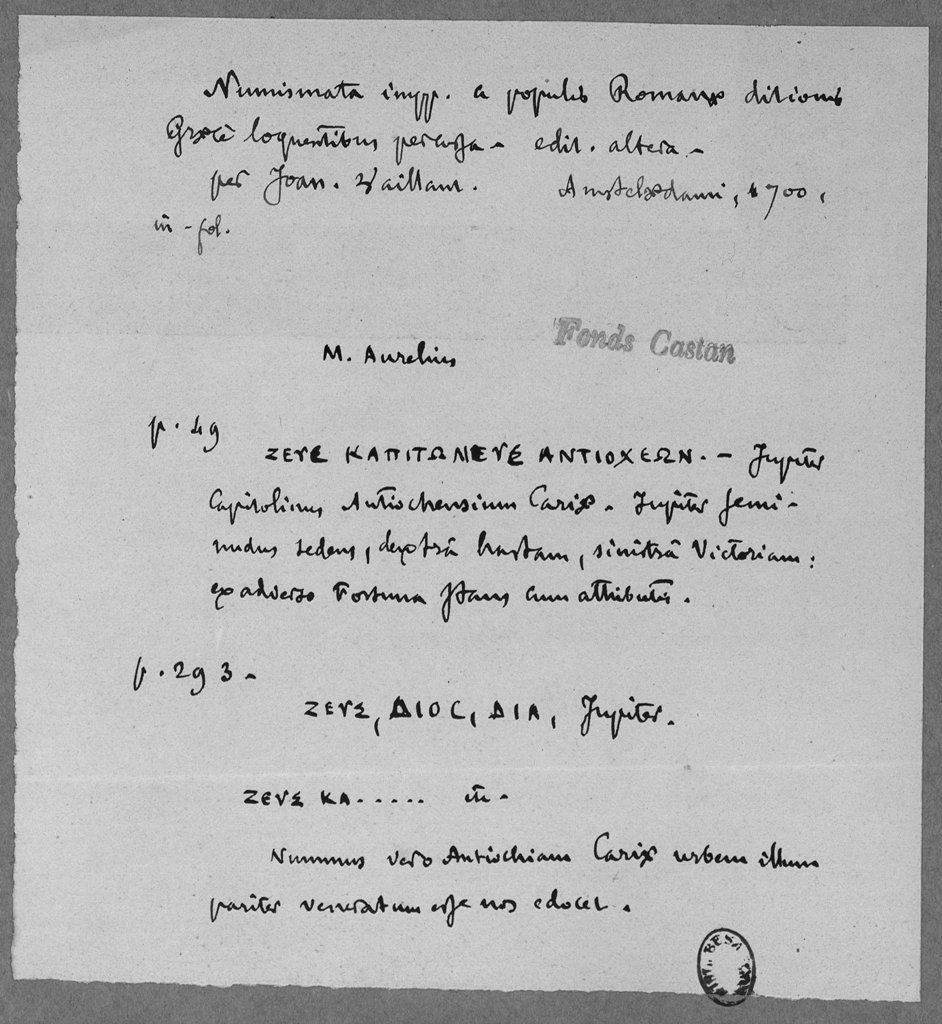 Numismata impp. a populis Romanæ ditionis
Græcè loquentibus percussa - edit. altera -
per Joan. Vaillant. Amstelædami, 1700,
in-fol.
Fonds Castan
M. Aurelius
p. 49
ΖΕΥΣ ΚΑΠΙΤΩΛΙΕΥΣ ΑΝΤΙΟΧΕΩΝ. - Jupiter
Capitolinus Antiochensium Cariæ. Jupiter semi-
nudus sedens, dextrâ hastam, sinistrâ Victoriam :
ex adverso Fortuna stans cum attributis.
p. 293 -
ΖΕΥΣ, ΔΙΟC, ΔΙΑ, Jupiter.
ΖΕΥΣ ΚΑ.....
Nummus vero Antiochiam Cariæ urbem illum
pariter veneratam esse nos edocet.
BESA